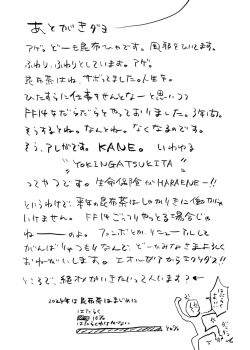 あとがきダヨ
アゲ。どーも昆布ひゃです。風邪をひいてます。
ふわり、ふわりとしています。アゲ。
昆布茶はね、サボってました。人生を。
ひたすらに仕事をせんとなーと思いつつ
FF14をだらだらとやっておりました。3年間。
そうするとね。なんとね。なくなるのです。
そう、アレがです。KANE。いわゆる
"YOKINGATSUKITA"
ってやつです。生命保険がHARAENEー!!
というわけで、来年の昆布茶はしっかりきに働かないと
いけません。FF14ごっつりやっとる場合じゃ
ねーーーのよ。ファンボとかも、リニューアルして
がんばりゃっもりなんで、どーかみなさまよろしく
おねがいします。エオルゼアからモクダヨ!!
ところで、絶オメガいきたいって人います?
2024年は昆布茶はまじめに
はたらく
10%
はたらかなければならない
90%
はたらく